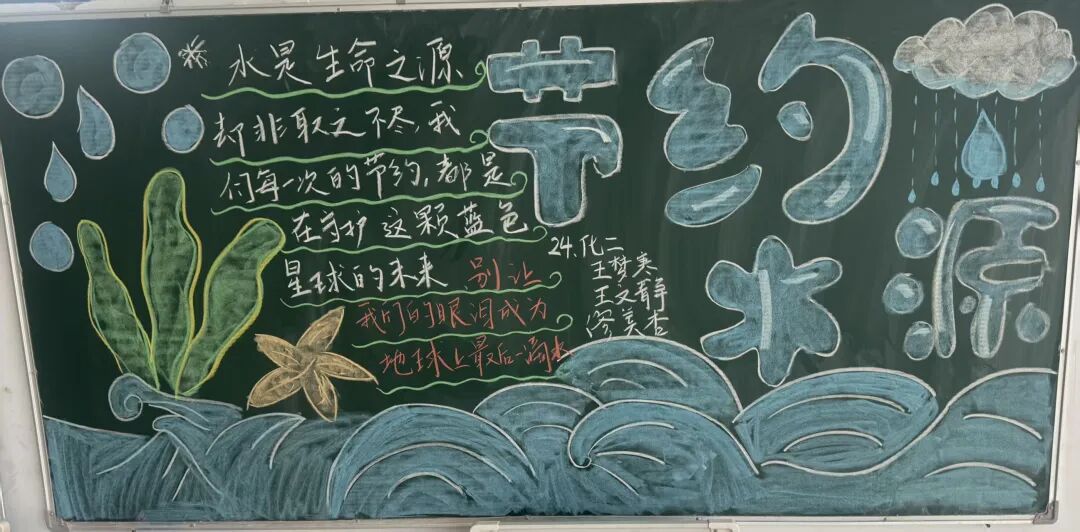 水是生命之源
却非取之不尽,我
们每一次的节约,都是
在守护这颗蓝色
星球的未来 别让
我们的眼泪成为
地球上最后一滴水
节约
水源
24.化二
王梦寒
王文静
廖美杏